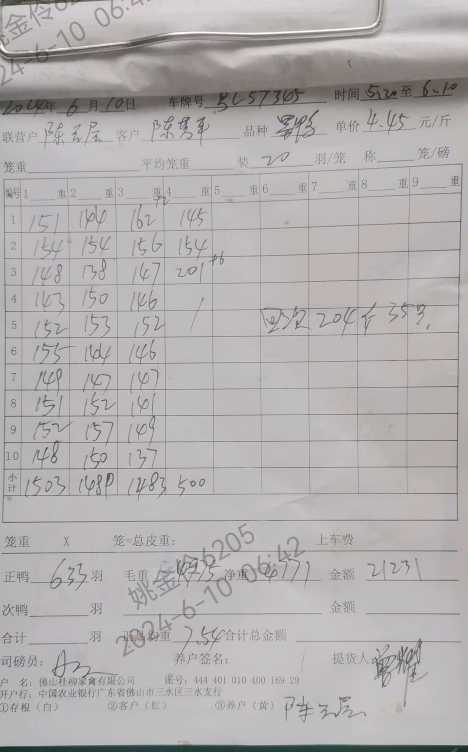 2024年 6月10日 车牌号 5L57365 时间 5.20 至 6.10
联营户 客户 品种 单价 4.45 元/斤
笼重 平均笼重 装 20 羽/笼 称 笼/磅
编号 1 重 2 重 3 重 4 重 5 重 6 重 7 重 8 重 9 重
1 151 144 162 145
2 154 154 156 154
3 148 138 147 201
4 143 150 146
5 152 153 152
204 35
6 155 144 146
7 149 147 147
8 151 152 141
9 152 157 149
10 148 150 137
小计 1503 1489 1483 500
笼重 X 笼=总皮重: 上车费
正鸭 633 羽 毛重 净重 4771 金额 21231
次鸭 羽 金额
合计 羽 均重 7.54 合计总金额
司磅员: 养户签名: 提货人
户 名: 佛山桂柳家禽有限公司 账号: 444 401 010 400 169 29
开户行: 中国农业银行广东省佛山市三水区三水支行
①存根(白) ②客户(红) ③养户(黄)
姚金伶6205
2024-6-10 06:42